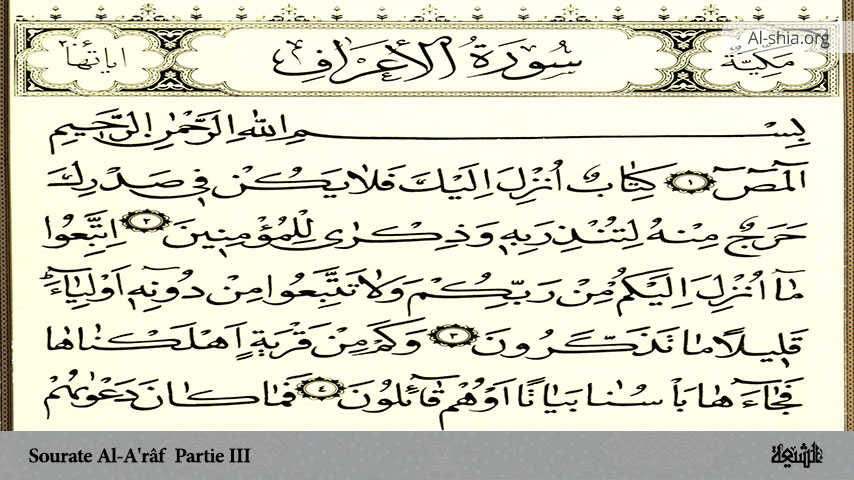 Al-shia.org
مَكِّيَّةٌ سُورَةُ الْأَعْرَافِ اياتها
بِسْمِ اللهِ الرَّحْمٰنِ الرَّحِيمِ
الٓمٓصٓ ﴿١﴾ كِتَابٌ اُنْزِلَ اِلَيْكَ فَلَا يَكُنْ فِي صَدْرِكَ
حَرَجٌ مِنْهُ لِتُنْذِرَ بِهِ وَذِكْرٰى لِلْمُؤْمِنِينَ ﴿٢﴾ اِتَّبِعُوا
مَا اُنْزِلَ اِلَيْكُمْ مِنْ رَبِّكُمْ وَلَا تَتَّبِعُوا مِنْ دُونِهِ اَوْلِيَاءَ
قَلِيلًا مَا تَذَكَّرُونَ ﴿٣﴾ وَكَمْ مِنْ قَرْيَةٍ اَهْلَكْنَاهَا
فَجَاءَهَا بَأْسُنَا بَيَاتًا اَوْ هُمْ قَائِلُونَ ﴿٤﴾ فَمَا كَانَ دَعْوٰيهُمْ
Sourate Al-A'râf Partie III
الشيعة